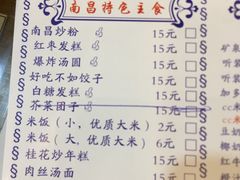 南昌特色主食
南昌炒粉 15元
红枣发糕 15元
爆炸汤圆 15元
好吃不如饺子 15元
白糖发糕 15元
芥菜团子 15元
米饭（小，优质大米） 2元
米饭（大，优质大米） 6元
桂花炒年糕 15元
肉丝汤面 15元
矿
听装
听装
cc
cc米